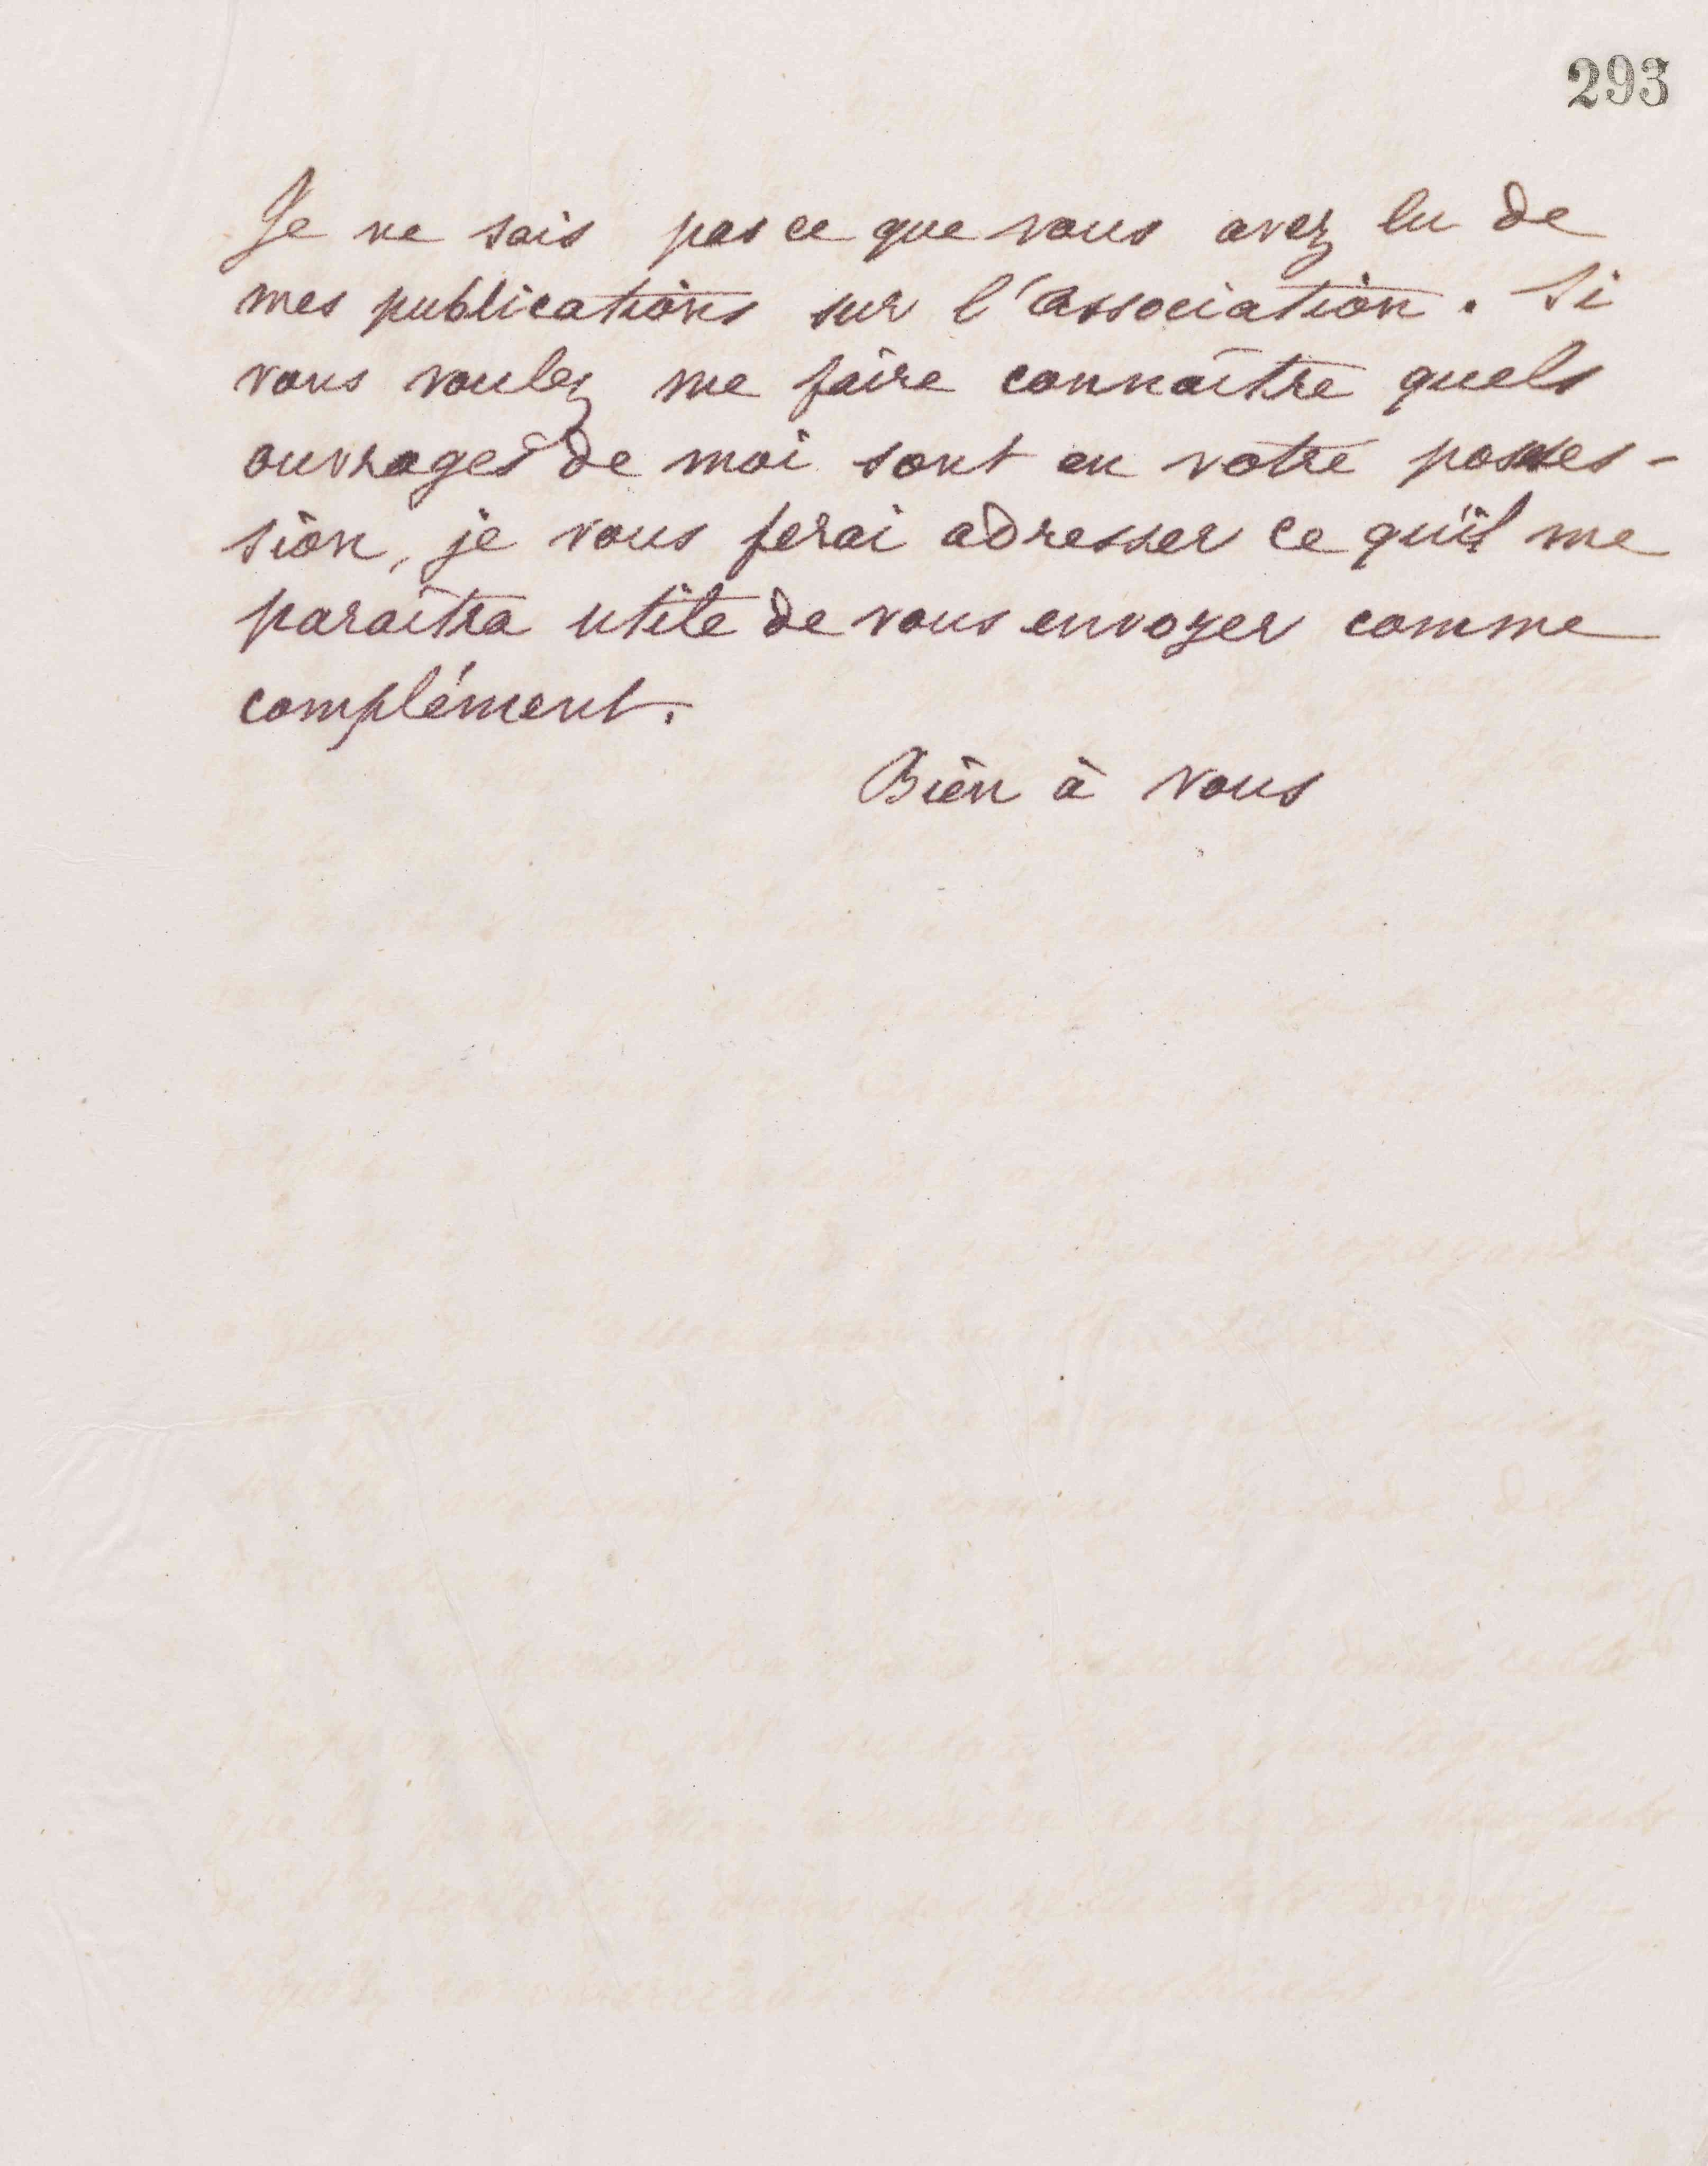 293
Je ne sais pas ce que vous avez lu de
mes publications sur l'association. Si
vous voulez me faire connaître quels
ouvrages de moi sont en votre posses-
sion, je vous ferai adresser ce qu'il me
paraîtra utile de vous envoyer comme
complément.
Bien à vous